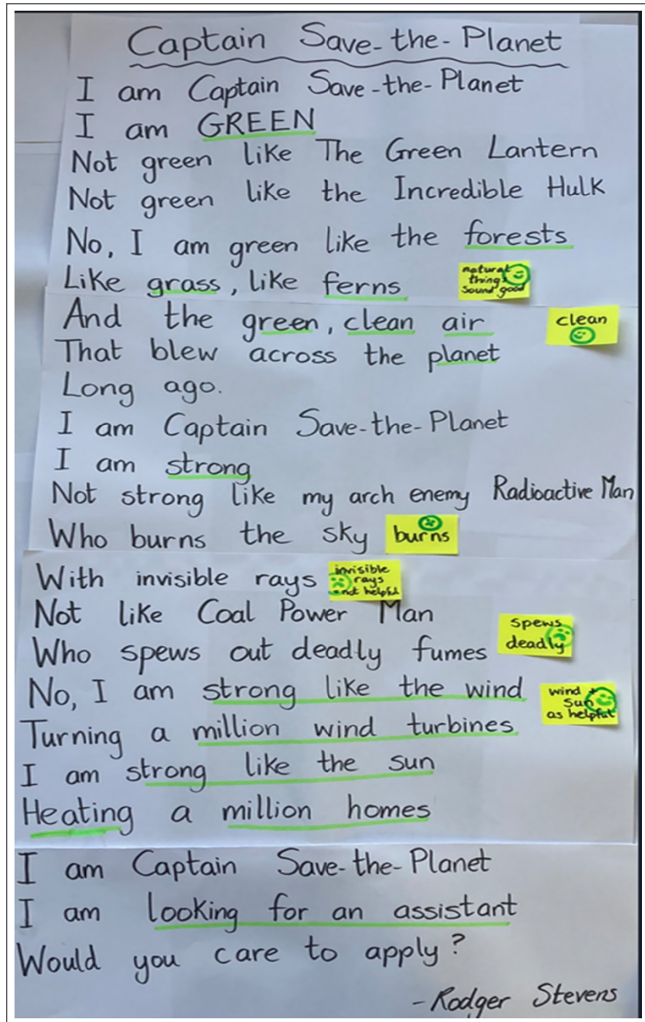 Captain Save-the-Planet
I am Captain Save-the-Planet
I am GREEN
Not green like The Green Lantern
Not green like the Incredible Hulk
No, I am green like the forests
Like grass, like ferns
natural things sound good
And the green, clean air
clean
That blew across the planet
Long ago.
I am Captain Save-the-Planet
I am strong
Not strong like my arch enemy Radioactive Man
Who burns the sky
burns
With invisible rays
invisible rays not helpful
Not like Coal Power Man
Who spews out deadly fumes
spews deadly
No, I am strong like the wind
wind + sun as helpful
Turning a million wind turbines
I am strong like the sun
Heating a million homes
I am Captain Save-the-Planet
I am looking for an assistant
Would you care to apply?
- Rodger Stevens